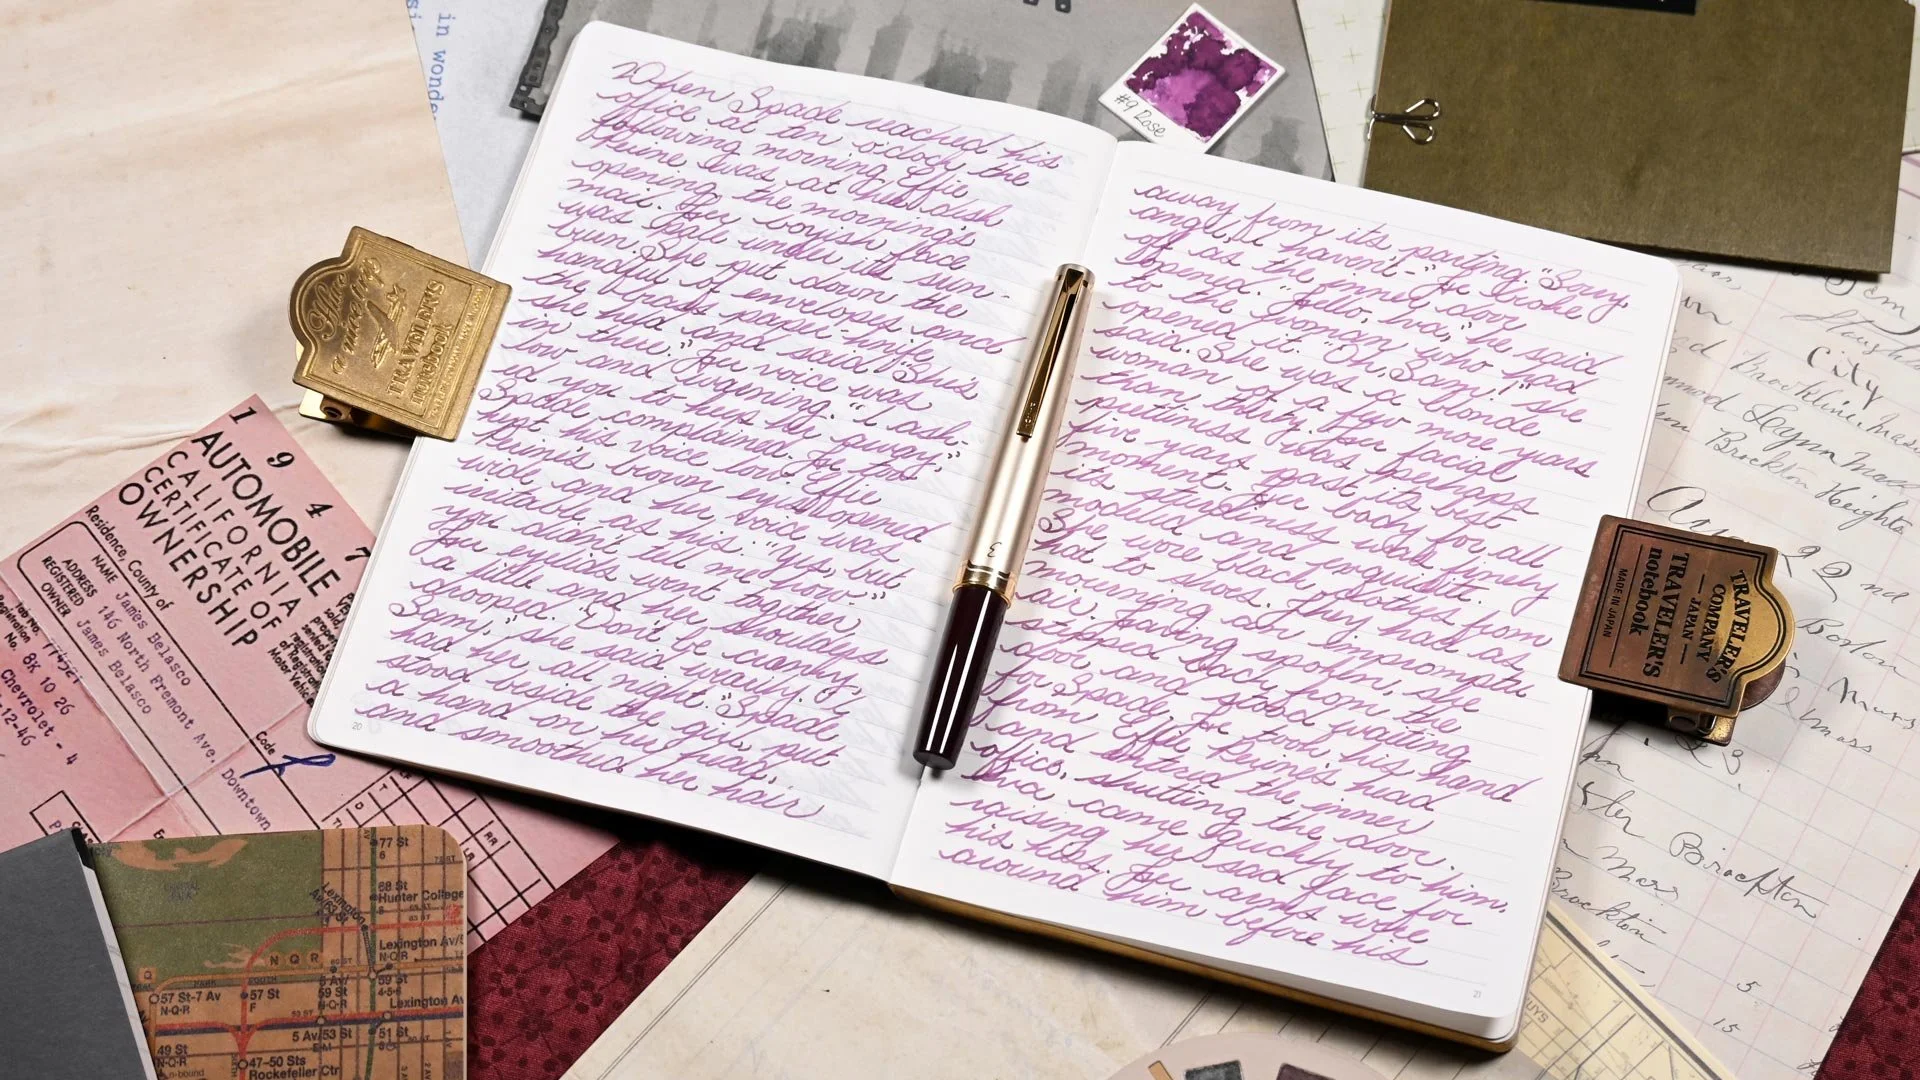 in wonde
#9 Rose
When Spade reached his
office at ten o'clock the
following morning Effie
Perine was at her desk
opening the morning's
mail. Her boyish face
was pale under its sun-
burn. She put down the
handful of envelopes and
the brass paper-knife
she held and said "She's
in there." Her voice was
low and warning. "I ask-
ed you to keep her away,"
Spade complained. He too
kept his voice low. Effie
Perine's brown eyes opened
wide and her voice was
irritable as his: "Yes, but
you didn't tell me how."
Her eyelids went together
a little and her shoulders
drooped. "Don't be cranky,
Sam," she said wearily. "I
had her all night." Spade
stood beside the girl, put
a hand on her head,
and smoothed her hair
20
away from its parting. "Sorry,
angel, I haven't-" He broke
off as the inner door
opened. "Hello, Iva," he said
to the woman who had
opened it. "Oh, Sam!" she
said. She was a blonde
woman of a few more years
than thirty. Her facial
prettiness was perhaps
five years past its best
moment. Her body for all
its sturdiness was finely
modeled and exquisite.
She wore black clothes from
hat to shoes. They had as
mourning an impromptu
air. Having spoken, she
stepped back from the
door and stood waiting
for Spade. He took his hand
from Effie Perine's head
and entered the inner
office, shutting the door.
Iva came quickly to him,
raising her sad face for
his kiss. Her arms were
around him before his
21
TRAVELER'S
notebook
TRAVELER'S
COMPANY
JAPAN
TRAVELER'S
notebook
MADE IN JAPAN
1947
AUTOMOBILE
CALIFORNIA
CERTIFICATE OF
OWNERSHIP
Residence, County of
NAME James Belasco
ADDRESS 146 North Fremont Ave.
REGISTERED OWNER James Belasco
Code
Downtown
No. 8K 10 26
Chevrolet - 4
-12-46
77 St
6
68 St
Hunter College
Lexington Av/63 St
Lexington Av/
N-Q-R
59 St
4-5-6
N Q R
5 Av/
59 St
N-Q-R
57 St-7 Av
N-Q-R
57 St
F
Lexington Av
5 Av/53 St
51 St
49 St
N-Q-R
47-50 Sts
Rockefeller Ctr
City
Brookline, Mass
Brockton Heights
2nd
Boston
Mass
23
Brockton
Mars
Brockton
5
15